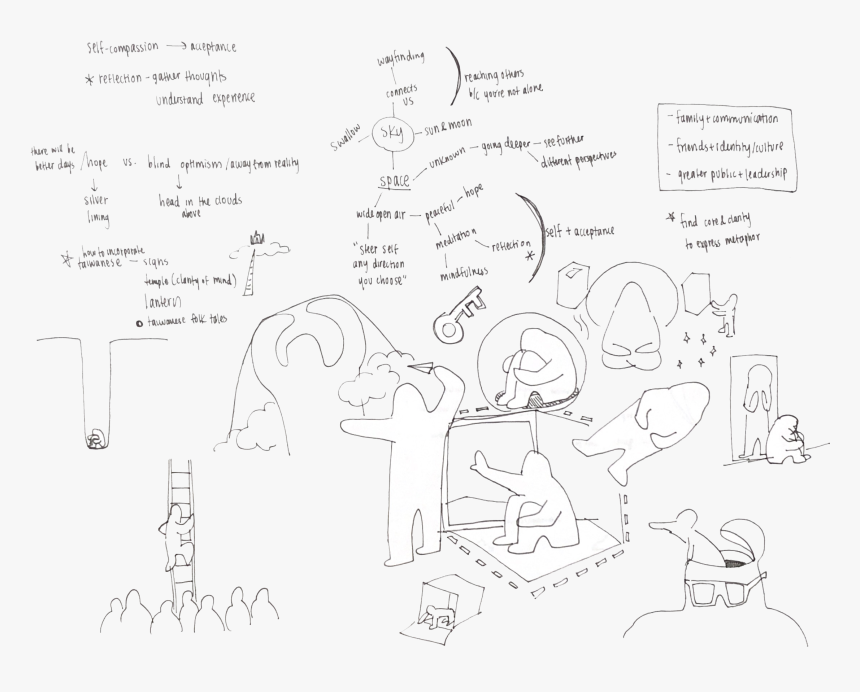 self-compassion → acceptance
* reflection - gather thoughts
understand experience
there will be
better days / hope vs. blind optimism / away from reality
silver
lining
head in the clouds
above
* how to incorporate
taiwanese - signs
temple (clarity of mind)
lantern
taiwanese folk tales
wayfinding
connects
us
reaching others
b/c you're not alone
swallow
sky
sun & moon
space
unknown - going deeper - see further
different perspectives
wide open air - peaceful - hope
"steer self
any direction
you choose"
meditation
reflection
*
mindfulness
self + acceptance
- family + communication
- friends + identity/culture
- greater public + leadership
* find core & clarity
to express metaphor